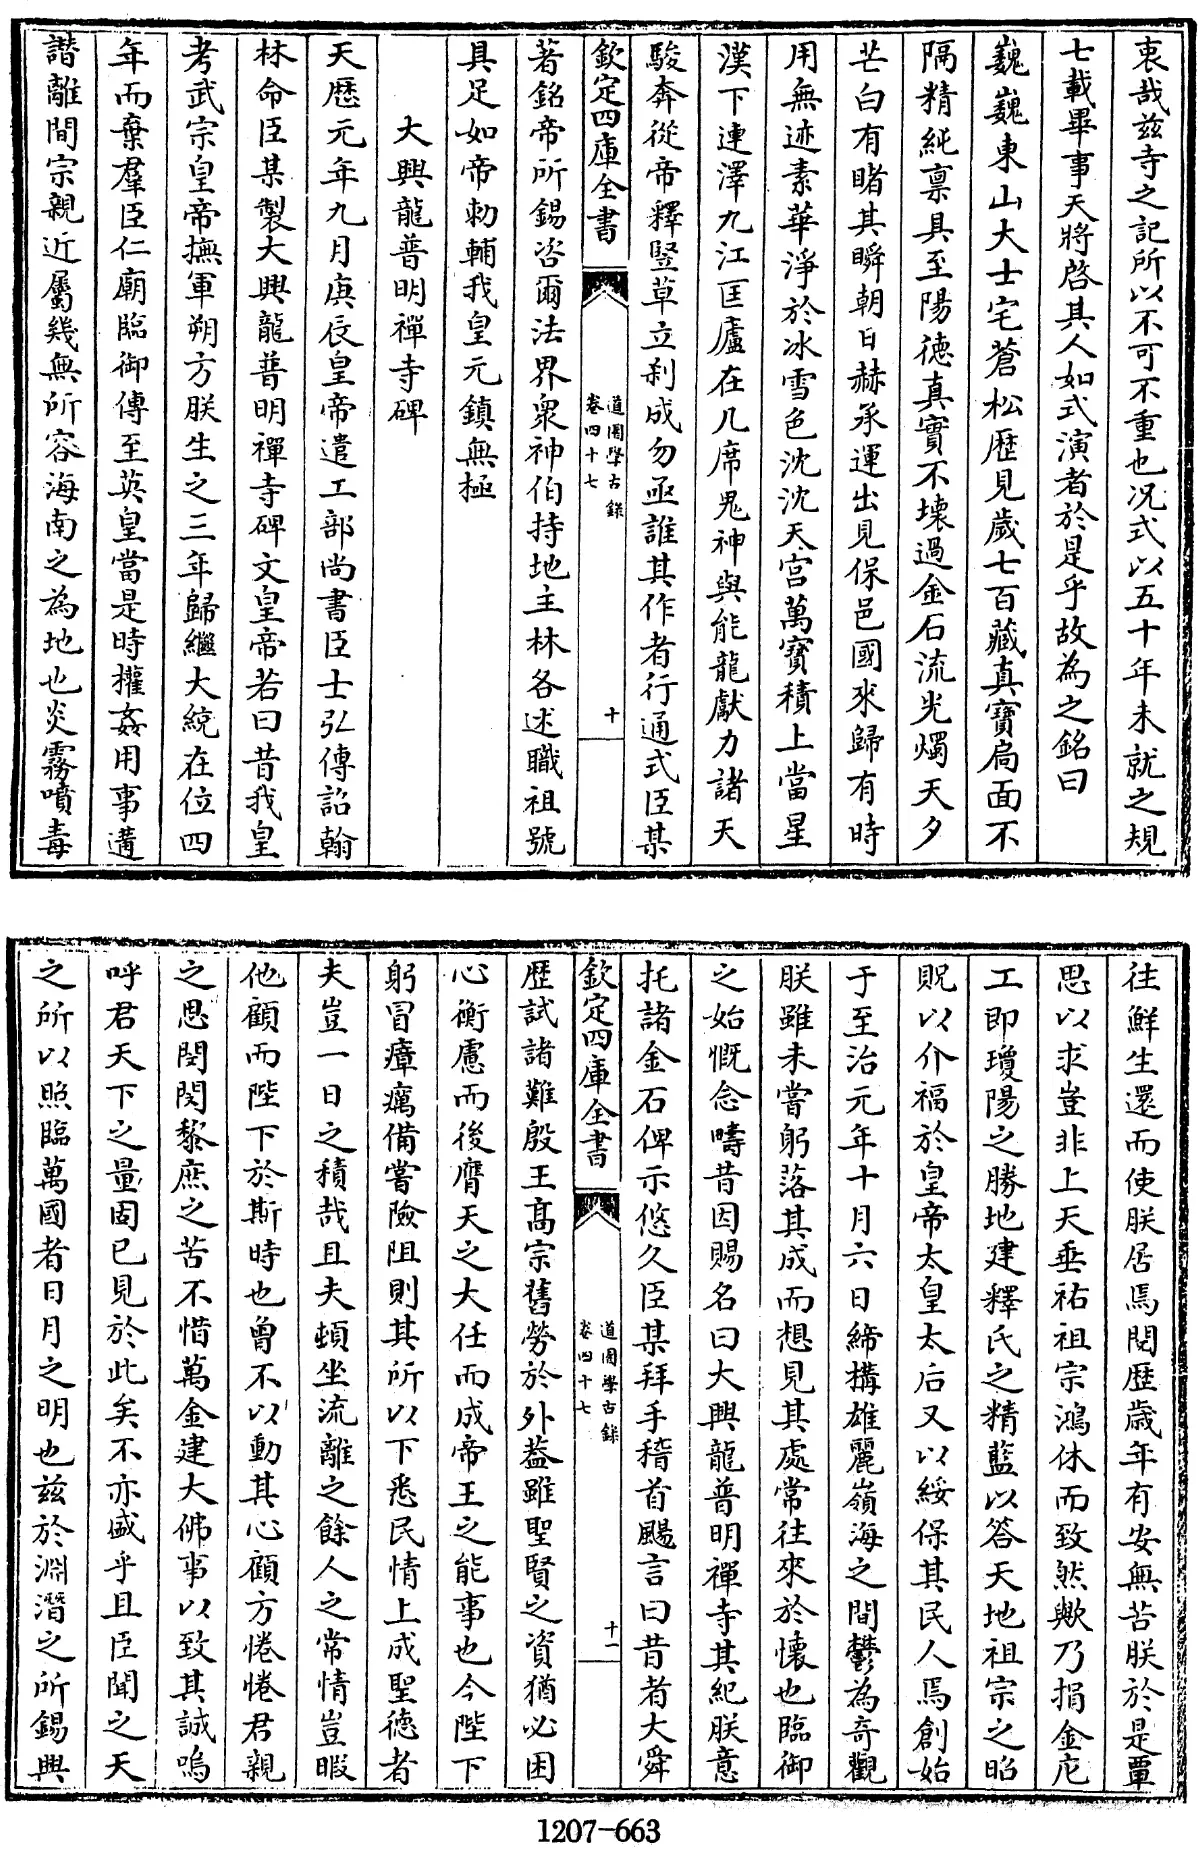 衷哉兹寺之記所以不可不重也况式以五十年未就之規
七載畢事天將啓其人如式演者於是乎故為之銘曰
巍巍東山大士宅蒼松歷見歲七百藏真寶扃面不
隔精純稟具至陽德真實不壞過金石流光燭天夕
芒白有睹其瞬朝日赫承運出見保邑國來歸有時
用無迹素華淨於冰雪色沈沈天宫萬寳積上當星
漢下連澤九江匡廬在几席鬼神與能龍獻力諸天
駿奔從帝釋竪草立刹成勿亟誰其作者行通式臣某
欽定四庫全書
道園學古録
卷四十七
十
著銘帝所錫咨爾法界衆神伯持地主林各述職祖號
具足如帝勅輔我皇元鎮無極
大興龍普明禪寺碑
天歷元年九月庚辰皇帝遣工部尚書臣士弘傳詔翰
林命臣某製大興龍普明禪寺碑文皇帝若曰昔我皇
考武宗皇帝撫軍朔方朕生之三年歸繼大統在位四
年而棄羣臣仁廟臨御傳至英皇當是時權姦用事遘
譖離間宗親近屬幾無所容海南之為地也炎霧噴毒
往鮮生還而使朕居焉閱歷歲年有安無苦朕於是覃
思以求豈非上天垂祐祖宗鴻休而致然歟乃捐金庀
工即瓊陽之勝地建釋氏之精藍以答天地祖宗之昭
貺以介福於皇帝太皇太后又以綏保其民人焉創始
于至治元年十月六日締構雄麗嶺海之間鬱為奇觀
朕雖未嘗躬落其成而想見其處常往來於懷也臨御
之始慨念疇昔因賜名曰大興龍普明禪寺其紀朕意
托諸金石俾示悠久臣某拜手稽首颺言曰昔者大舜
欽定四庫全書
道園學古録
卷四十七
十一
歷試諸難殷王髙宗舊勞於外葢雖聖賢之資猶必困
心衡慮而後膺天之大任而成帝王之能事也今陛下
躬冒瘴癘備嘗險阻則其所以下悉民情上成聖德者
夫豈一日之積哉且夫頓坐流離之餘人之常情豈暇
他顧而陛下於斯時也曾不以動其心顧方惓惓君親
之恩閔閔黎庶之苦不惜萬金建大佛事以致其誠嗚
呼君天下之量固已見於此矣不亦盛乎且臣聞之天
之所以照臨萬國者日月之明也兹於淵潛之所錫興
1207-663